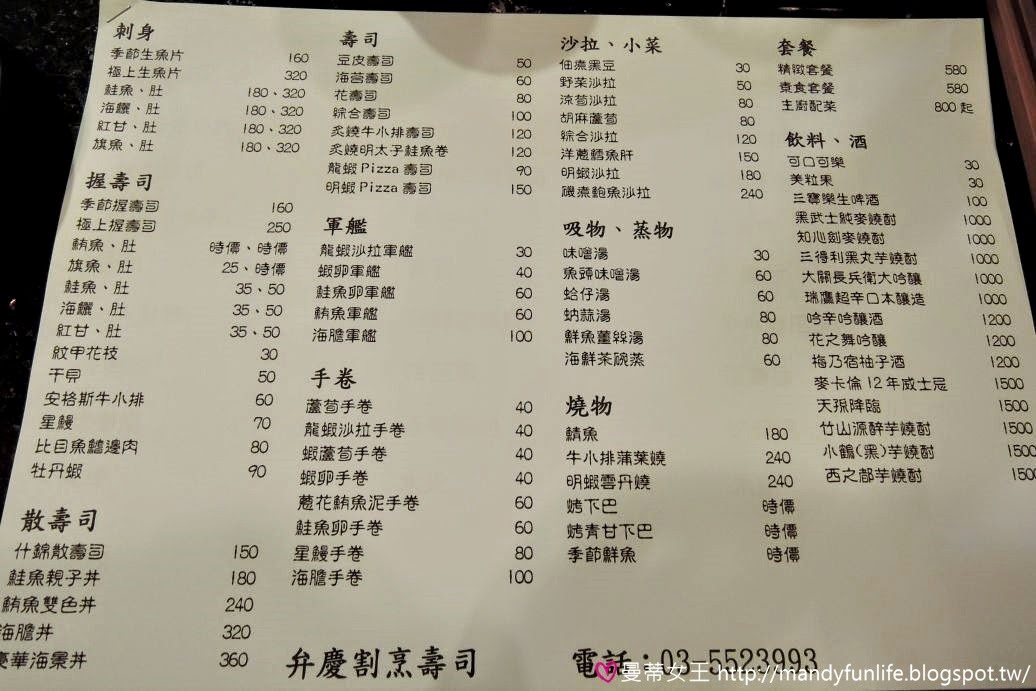 刺身
季節生魚片 160
極上生魚片 320
鮭魚、肚 180、320
海鱺、肚 180、320
紅甘、肚 180、320
旗魚、肚 180、320
握壽司
季節握壽司 160
極上握壽司 250
鮪魚、肚 時價、時價
旗魚、肚 25、時價
鮭魚、肚 35、50
海鱺、肚 35、50
紅甘、肚 35、50
紋甲花枝 30
干貝 50
安格斯牛小排 60
星鰻 70
比目魚鰭邊肉 80
牡丹蝦 90
散壽司
什錦散壽司 150
鮭魚親子丼 180
鮪魚雙色丼 240
海膽丼 320
豪華海景丼 360
壽司
豆皮壽司 50
海苔壽司 60
花壽司 80
綜合壽司 100
炙燒牛小排壽司 120
炙燒明太子鮭魚卷 120
龍蝦Pizza壽司 90
明蝦Pizza壽司 150
軍艦
龍蝦沙拉軍艦 30
蝦卵軍艦 40
鮭魚卵軍艦 60
鮪魚軍艦 60
海膽軍艦 100
手卷
蘆筍手卷 40
龍蝦沙拉手卷 40
蝦蘆筍手卷 40
蝦卵手卷 40
蔥花鮪魚泥手卷 60
鮭魚卵手卷 60
星鰻手卷 80
海膽手卷 100
沙拉、小菜
佃煮黑豆 30
野菜沙拉 50
涼筍沙拉 80
胡麻蘆筍 80
綜合沙拉 120
洋蔥鱈魚肝 150
明蝦沙拉 180
磯煮鮑魚沙拉 240
吸物、蒸物
味噌湯 30
魚頭味噌湯 60
蛤仔湯 60
蚋蒜湯 80
鮮魚薑絲湯 80
海鮮茶碗蒸 60
燒物
鯖魚 180
牛小排蒲葉燒 240
明蝦雲丹燒 240
烤下巴 時價
烤青甘下巴 時價
季節鮮魚 時價
套餐
精緻套餐 580
素食套餐 580
主廚配菜 800起
飲料、酒
可口可樂 30
美粒果 30
三寶樂生啤酒 100
黑武士純麥燒酎 1000
知心劍麥燒酎 1000
三得利黑丸芋燒酎 1000
大關長兵衛大吟釀 1000
瑞鷹超辛口本釀造 1000
吟辛吟釀酒 1200
花之舞吟釀 1200
梅乃宿柚子酒 1200
麥卡倫12年威士忌 1500
天孫降臨 1500
竹山源醉芋燒酎 1500
小鶴(黑)芋燒酎 1500
西之都芋燒酎 1500
弁慶割烹壽司 電話:03-5523993
曼蒂女王 http://mandyfunlife.blogspot.tw/